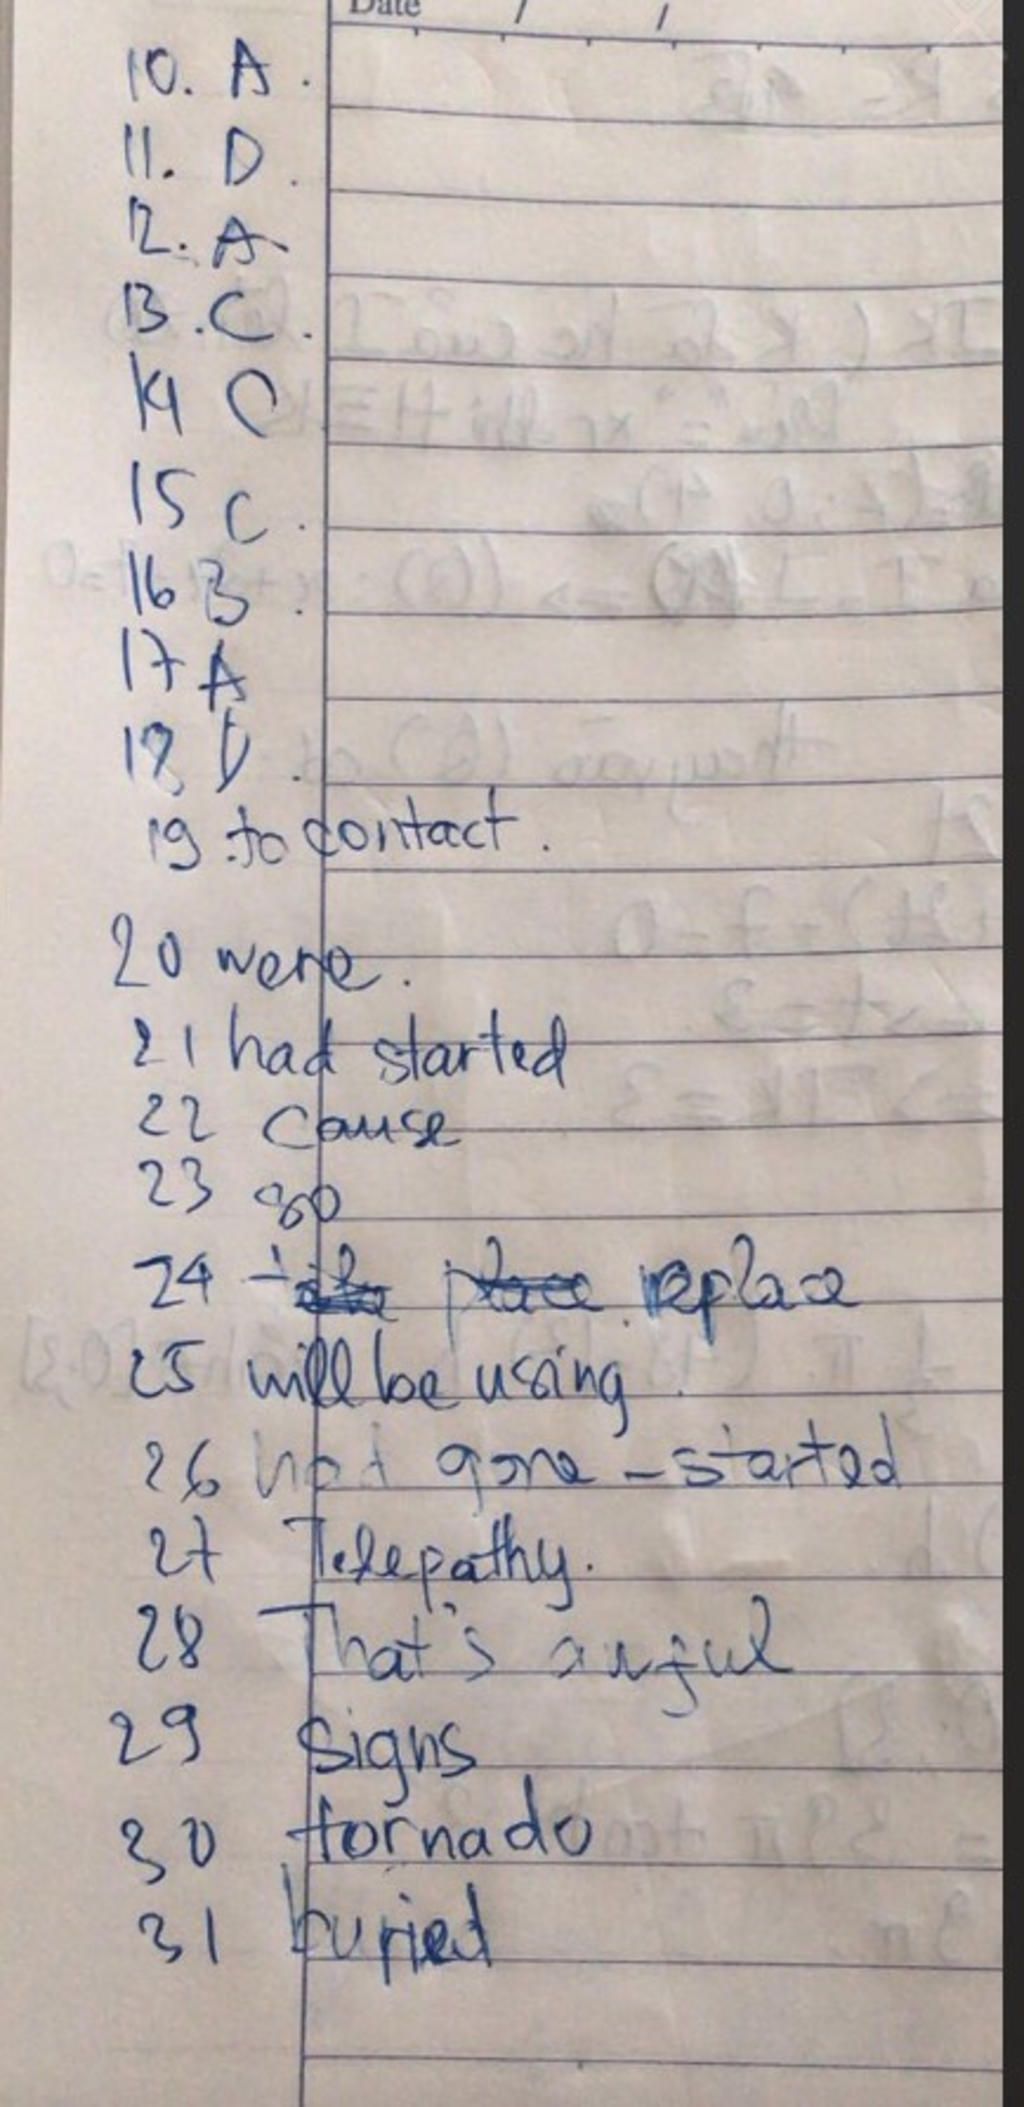 Date / /
10. A.
11. D.
12. A
13. C.
14 C
15 C.
16 B.
17 A
18 D.
19 to contact.
20 were.
21 had started
22 cause
23 go
24 replace
25 will be using.
26 had gone - started
27 Telepathy.
28 That's awful
29 Signs
30 tornado
31 buried